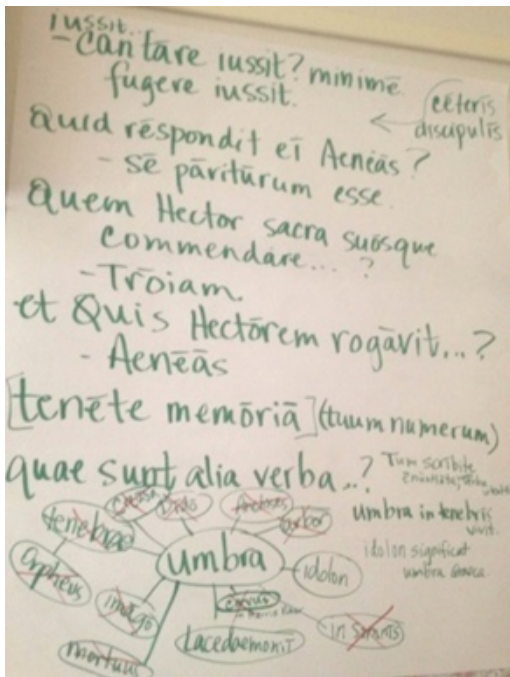 iussit.
- Cantāre iussit? minimē
fugere iussit.
cēterīs
discipulīs
Quid rēspondit eī Aenēās?
- sē pāritūrum esse.
Quem Hector sacra suōsque
commendāre...?
- Trōiam.
et Quis Hectōrem rogāvit...?
- Aenēās
[tenēte memōriā] (tuum numerum)
quae sunt alia verba...?
Tum scrībite
umbra in tenebrīs
vīvit.
īdōlon significat
umbra
tenebrae
Dido
arbor
umbra
īdōlon
Orpheus
imāgō
Lacedaemoniī
mortuus